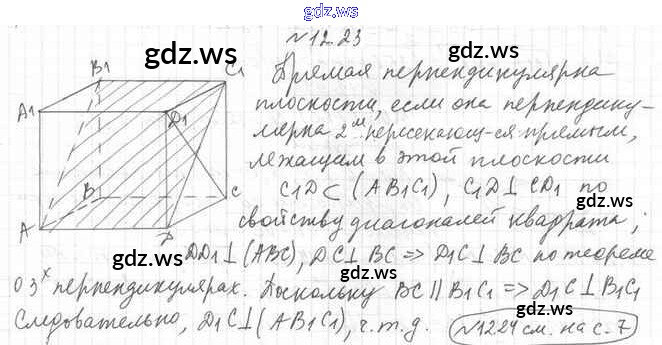 gdz.ws
№12.23
gdz.ws
gdz.ws
B1
C1
Прямая перпендикулярна
A1
D1
плоскости, если она перпендику-
лярна 2ᵘᵐ пересекающ-ся прямым,
лежащим в этой плоскости
B
C
C₁D ⊂ (AB₁C₁), C₁D ⊥ CD₁ по
A
D
свойству диагоналей квадрата;
gdz.ws
gdz.ws
DD₁ ⊥ (ABC), DC ⊥ BC => D₁C ⊥ BC по теореме
о 3ˣ перпендикулярах. Поскольку BC || B₁C₁ => D₁C ⊥ B₁C₁
Следовательно, D₁C ⊥ (AB₁C₁), ч.т.д.
№12.24 см. на с. 7
gdz.ws
gdz.ws